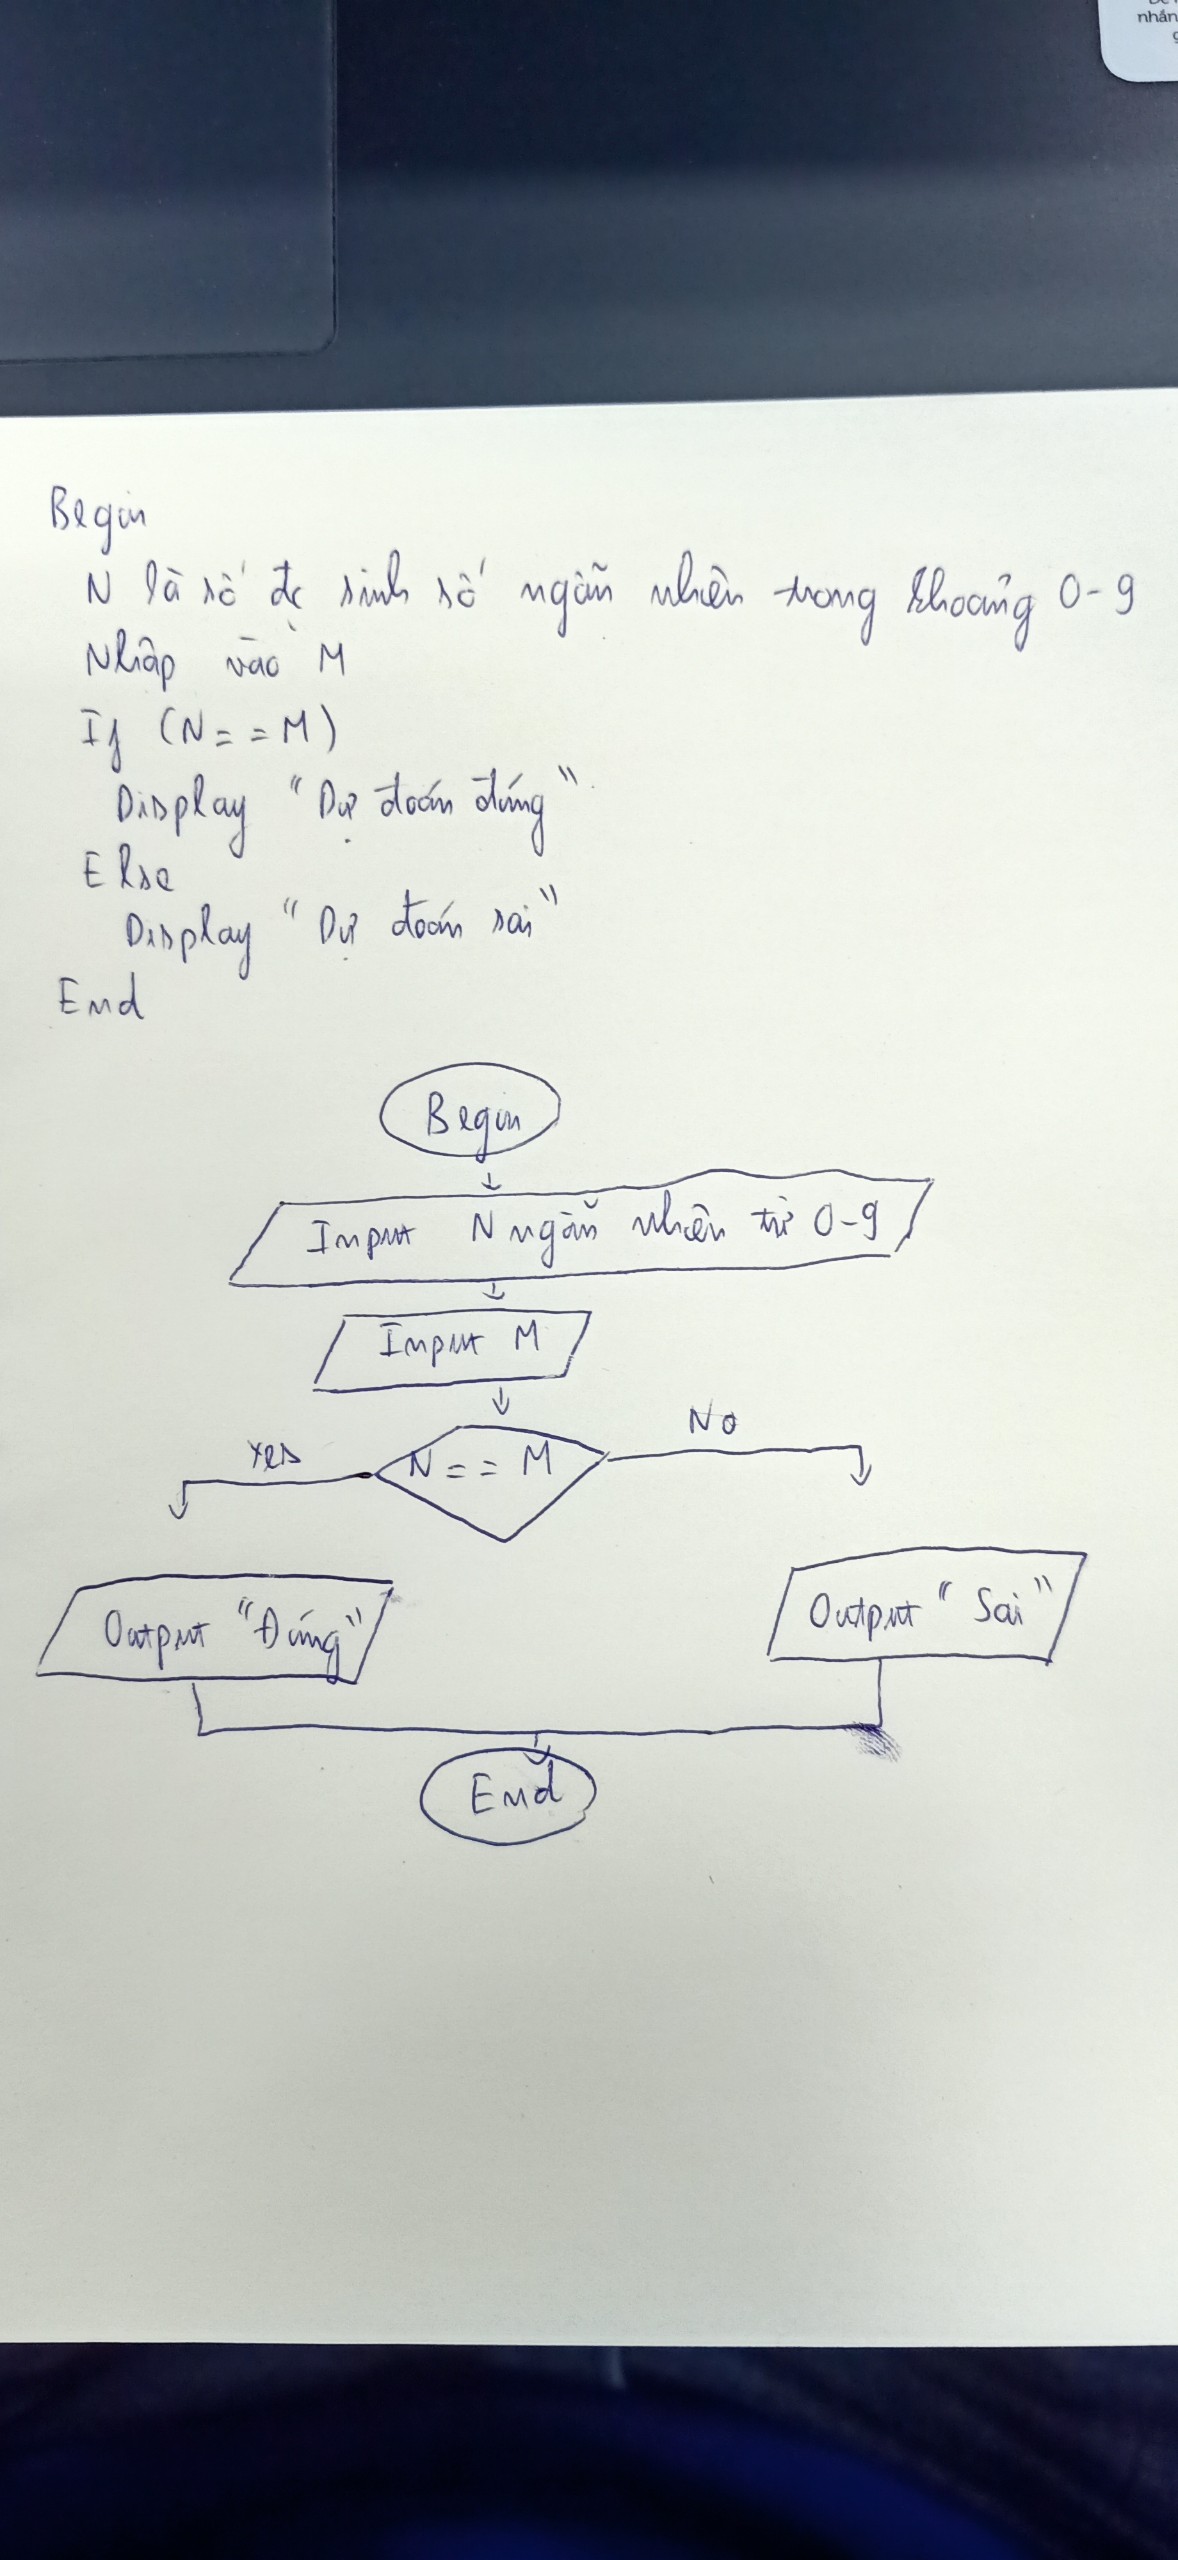 nhắn
Begin
N là số đc sinh số ngẫu nhiên trong khoảng 0-9
Nhập vào M
If (N==M)
Display "Dự đoán đúng"
Else
Display "Dự đoán sai"
End
Begin
Input N ngẫu nhiên từ 0-9
Input M
Yes
N == M
No
Output "Đúng"
Output "Sai"
End